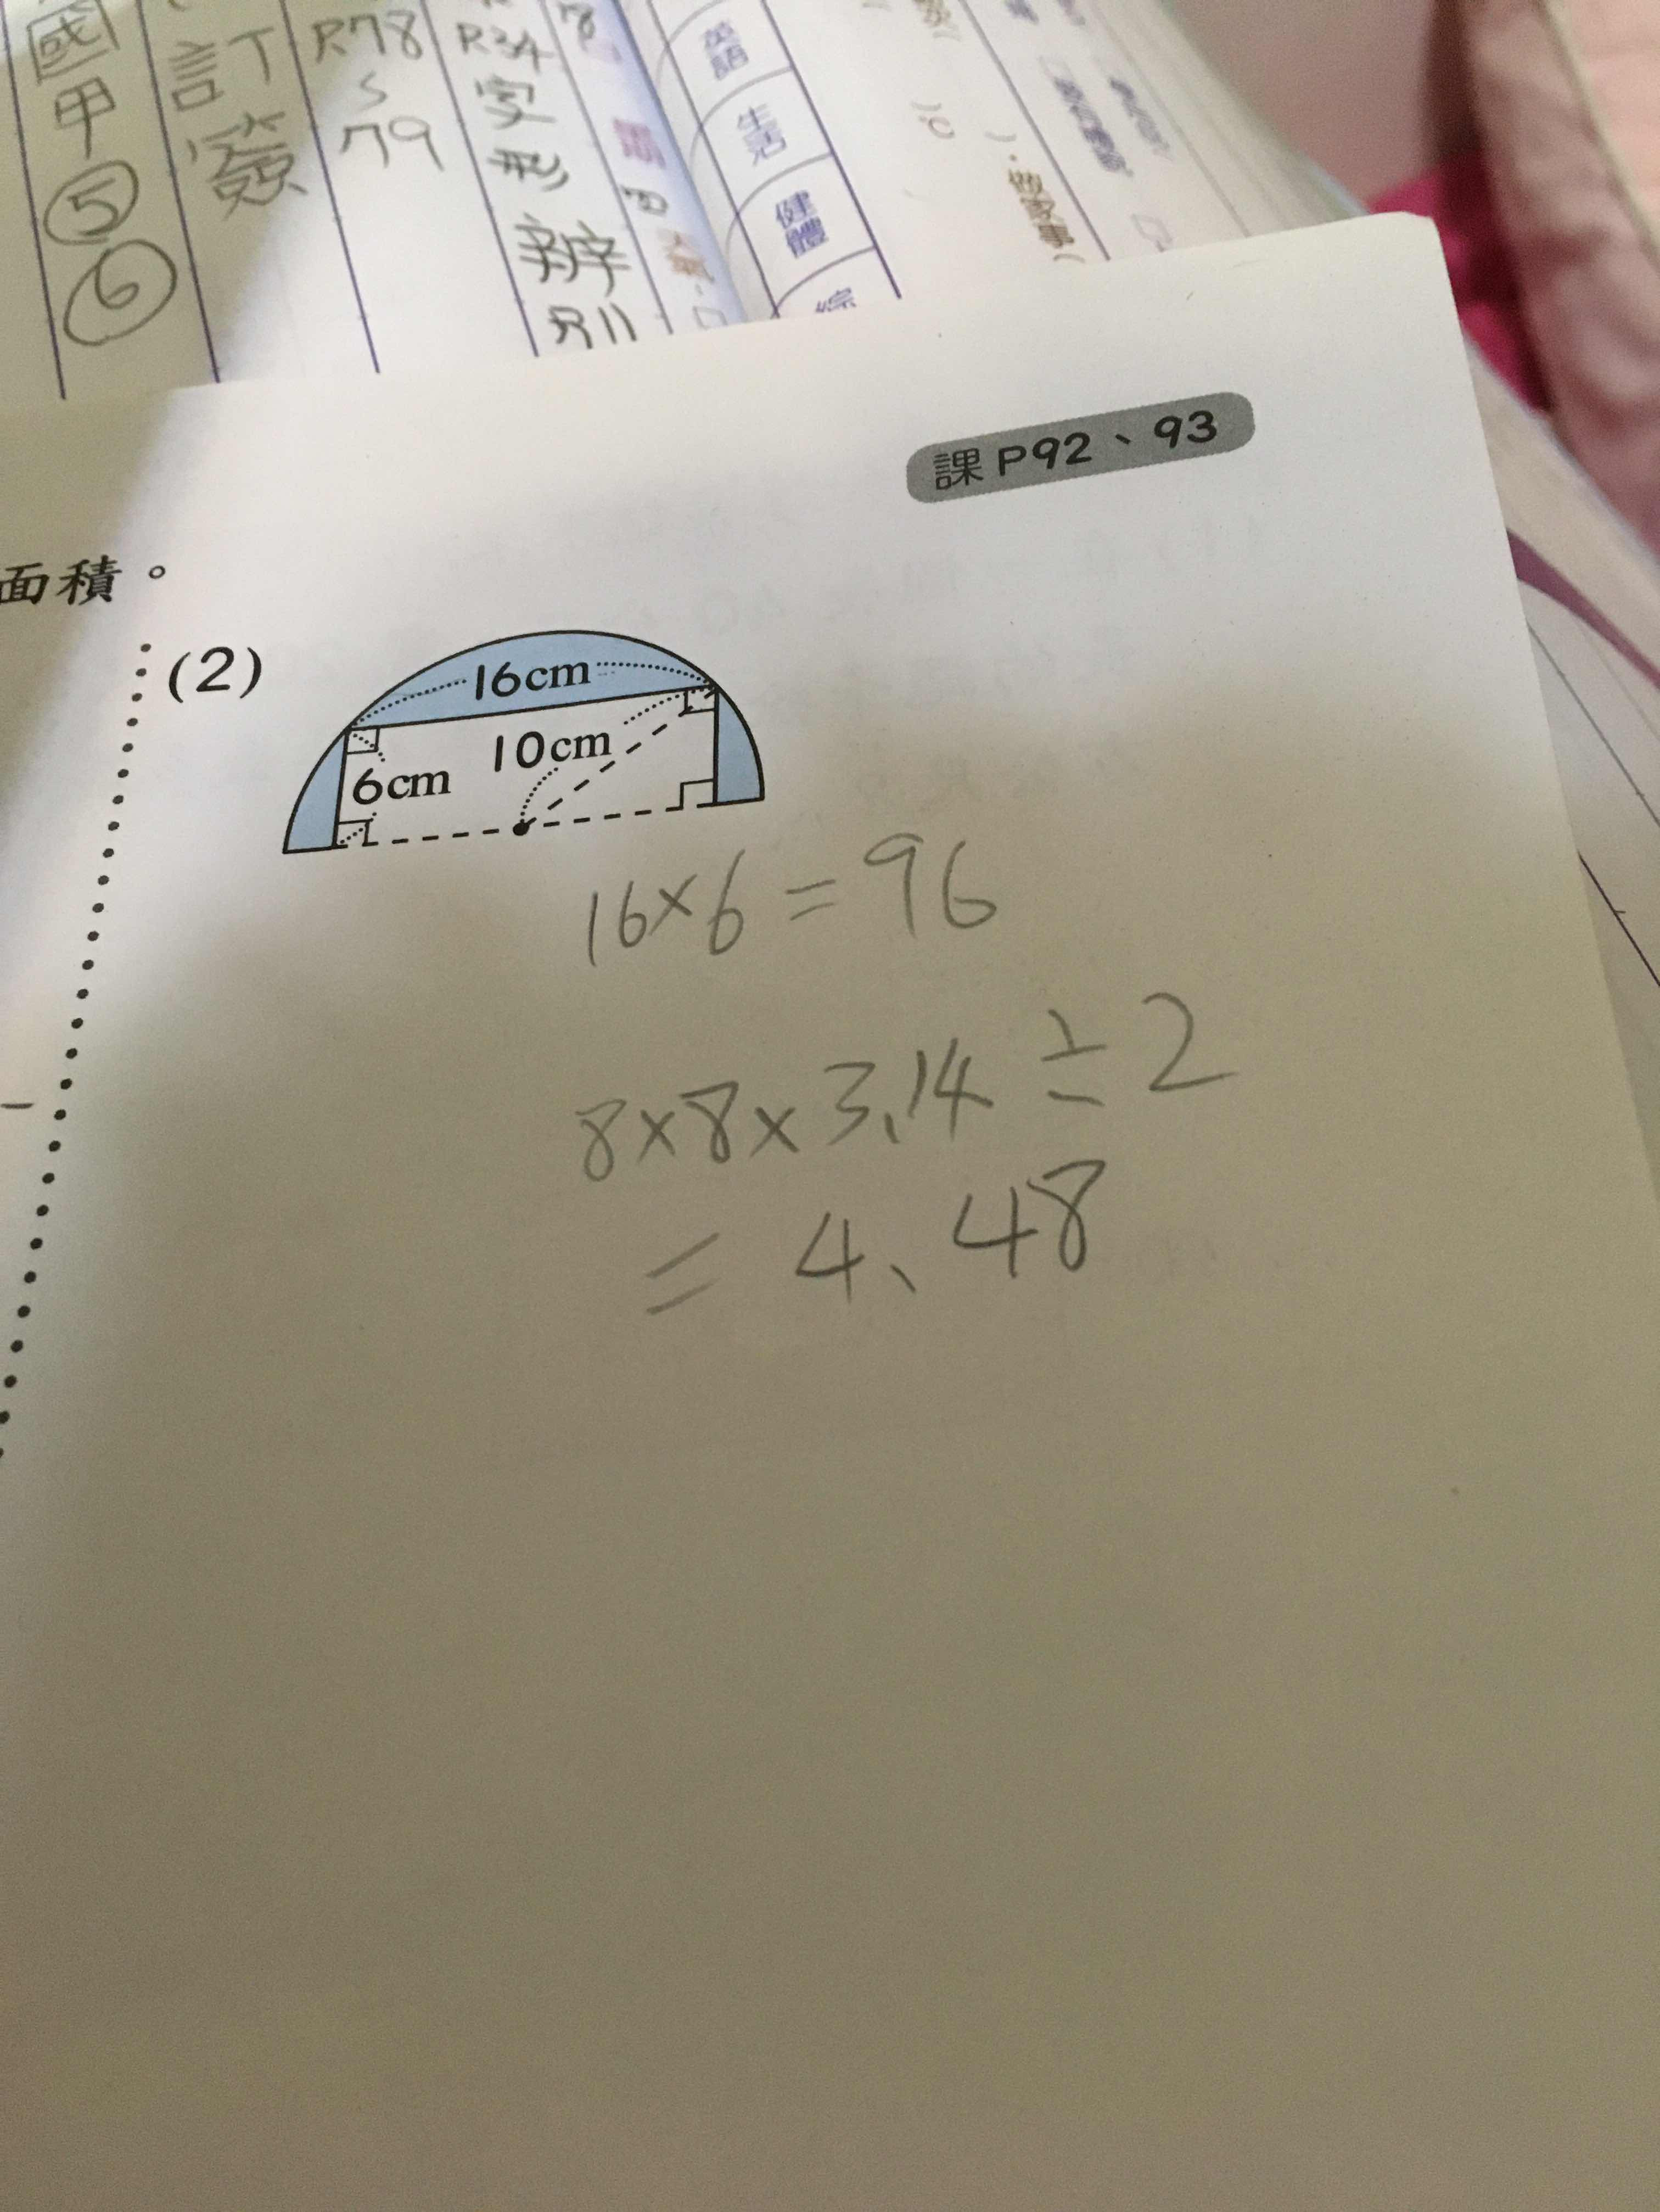 國 訂 P.78 P.34
甲 簽 79 字
⑤ 形
⑥ 辦
P.11
英語
生活
健體
綜
)℃
)、做家事(
課 P92、93
面積。
(2)
16cm
10cm
6cm
16×6=96
8×8×3.14÷2
=4.48